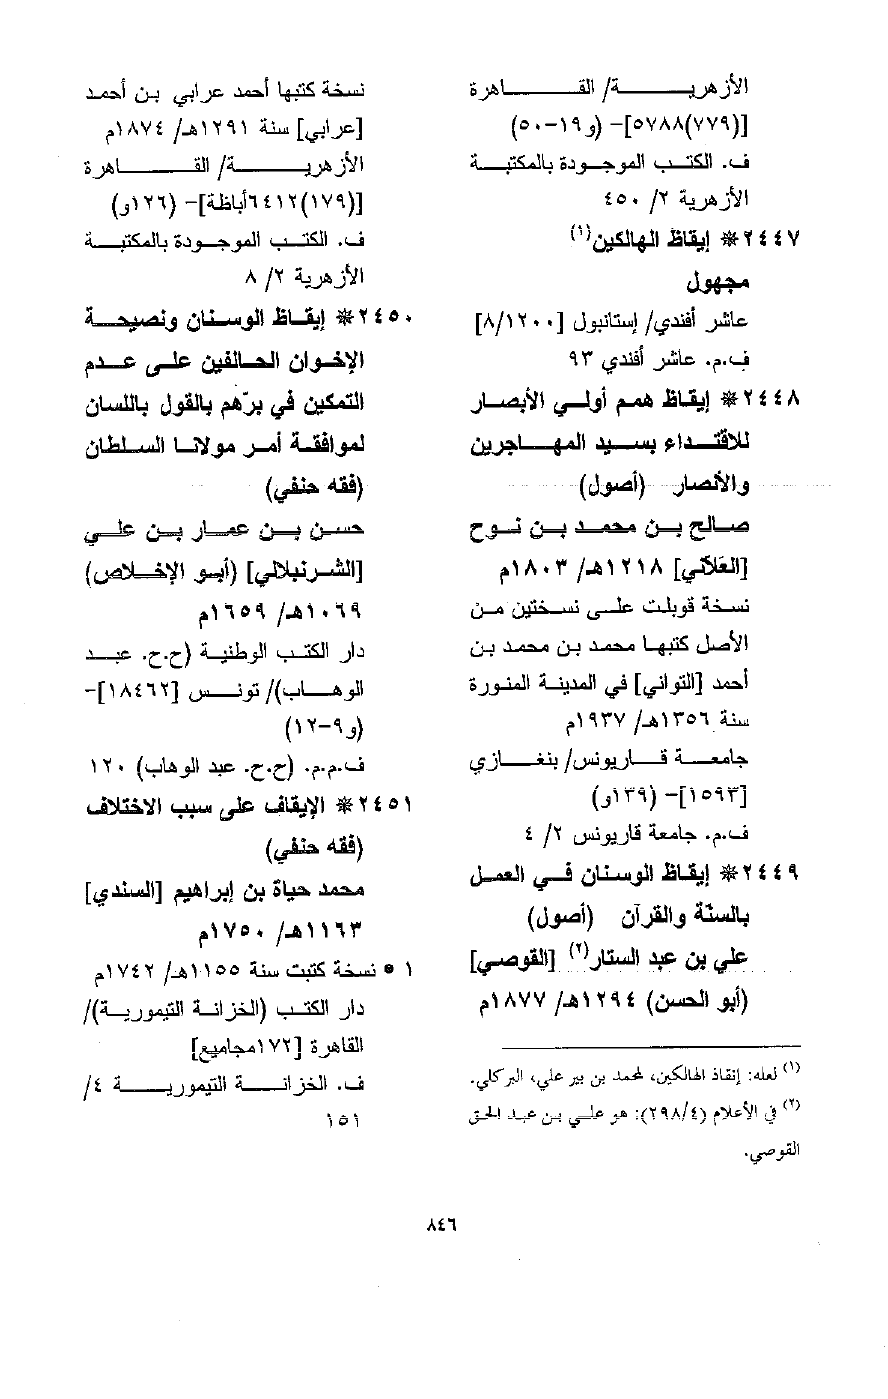 الأزهرية/ القاهرة
[(٧٧٩)٥٧٨٨]- (و١٩-٥٠)
ف. الكتب الموجودة بالمكتبة
الأزهرية ٢/ ٤٥٠
٢٤٤٧* إيقاظ الهالكين(١)
مجهول
عاشر أفندي/ إستانبول [٨/١٢٠٠]
ف.م. عاشر أفندي ٩٣
٢٤٤٨* إيقاظ همم أولي الأبصار
للاقتداء بسيد المهاجرين
والأنصار (أصول)
صالح بن محمد بن نوح
[الفلاّني] ١٢١٨هـ/ ١٨٠٣م
نسخة قوبلت على نسختين من
الأصل كتبها محمد بن محمد بن
أحمد [التواني] في المدينة المنورة
سنة ١٣٥٦هـ/ ١٩٣٧م
جامعة قاريونس/ بنغازي
[١٥٩٣]- (١٣٩و)
ف.م. جامعة قاريونس ٢/ ٤
٢٤٤٩* إيقاظ الوسنان في العمل
بالسنّة والقرآن (أصول)
علي بن عبد الستار(٢) [القوصي]
(أبو الحسن) ١٢٩٤هـ/ ١٨٧٧م
(١) لعله: إنقاذ الهالكين، لمحمد بن بير علي، البركلي.
(٢) في الأعلام (٢٩٨/٤): هو علي بن عبد الحق
القوصي.
نسخة كتبها أحمد عرابي بن أحمد
[عرابي] سنة ١٢٩١هـ/ ١٨٧٤م
الأزهرية/ القاهرة
[(١٧٩)٦٤١٢أباظة]- (١٢٦و)
ف. الكتب الموجودة بالمكتبة
الأزهرية ٢/ ٨
٢٤٥٠* إيقاظ الوسنان ونصيحة
الإخوان الحالفين على عدم
التمكين في برّهم بالقول باللسان
لموافقة أمر مولانا السلطان
(فقه حنفي)
حسن بن عمار بن علي
[الشرنبلالي] (أبو الإخلاص)
١٠٦٩هـ/ ١٦٥٩م
دار الكتب الوطنية (ح.ح. عبد
الوهاب)/ تونس [١٨٤٦٢]-
(و٩-١٢)
ف.م.م. (ح.ح. عبد الوهاب) ١٢٠
٢٤٥١* الإيقاف على سبب الاختلاف
(فقه حنفي)
محمد حياة بن إبراهيم [السندي]
١١٦٣هـ/ ١٧٥٠م
١ • نسخة كتبت سنة ١١٥٥هـ/ ١٧٤٢م
دار الكتب (الخزانة التيمورية)/
القاهرة [١٧٢مجاميع]
ف. الخزانة التيمورية ٤/
١٥١
٨٤٦